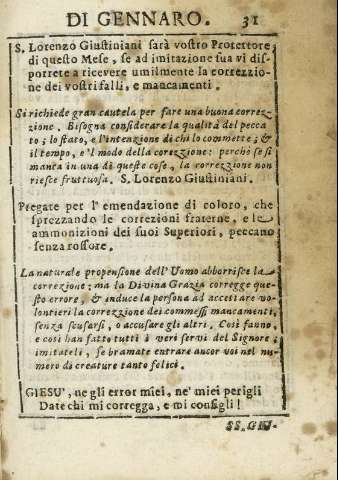 DI GENNARO. 31
S. Lorenzo Giustiniani sarà vostro Protettore
di questo Mese, se ad imitazione sua vi dis-
porrete a ricevere umilmente la correzzio-
ne dei vostri falli, e mancamenti.
Si richiede gran cautela per fare una buona correz-
zione. Bisogna considerare la qualità del pecca
to; lo stato, e l'intenzione di chi lo commette; &
il tempo, e 'l modo della correzzione: perchè se si
manca in una di queste cose, la correzzione non
riesce fruttuosa. S. Lorenzo Giustiniani.
Pregate per l'emendazione di coloro, che
sprezzando le correzioni fraterne, e le
ammonizioni dei suoi Superiori, peccano
senza rossore.
La naturale propensione dell'Uomo abborrisce la
correzione; ma la Divina Grazia corregge que-
sto errore, & induce la persona ad accettare vo-
lontieri la correzzione dei commessi mancamenti,
senza scusarsi, o accusare gli altri. Così fanno,
e così han fatto tutti i veri servi del Signore;
imitateli, se bramate entrare ancor voi nel nu-
mero di creature tanto felici.
GIESU', ne gli error miei, ne' miei perigli
Date chi mi corregga, e mi consigli!
SS. GEI-